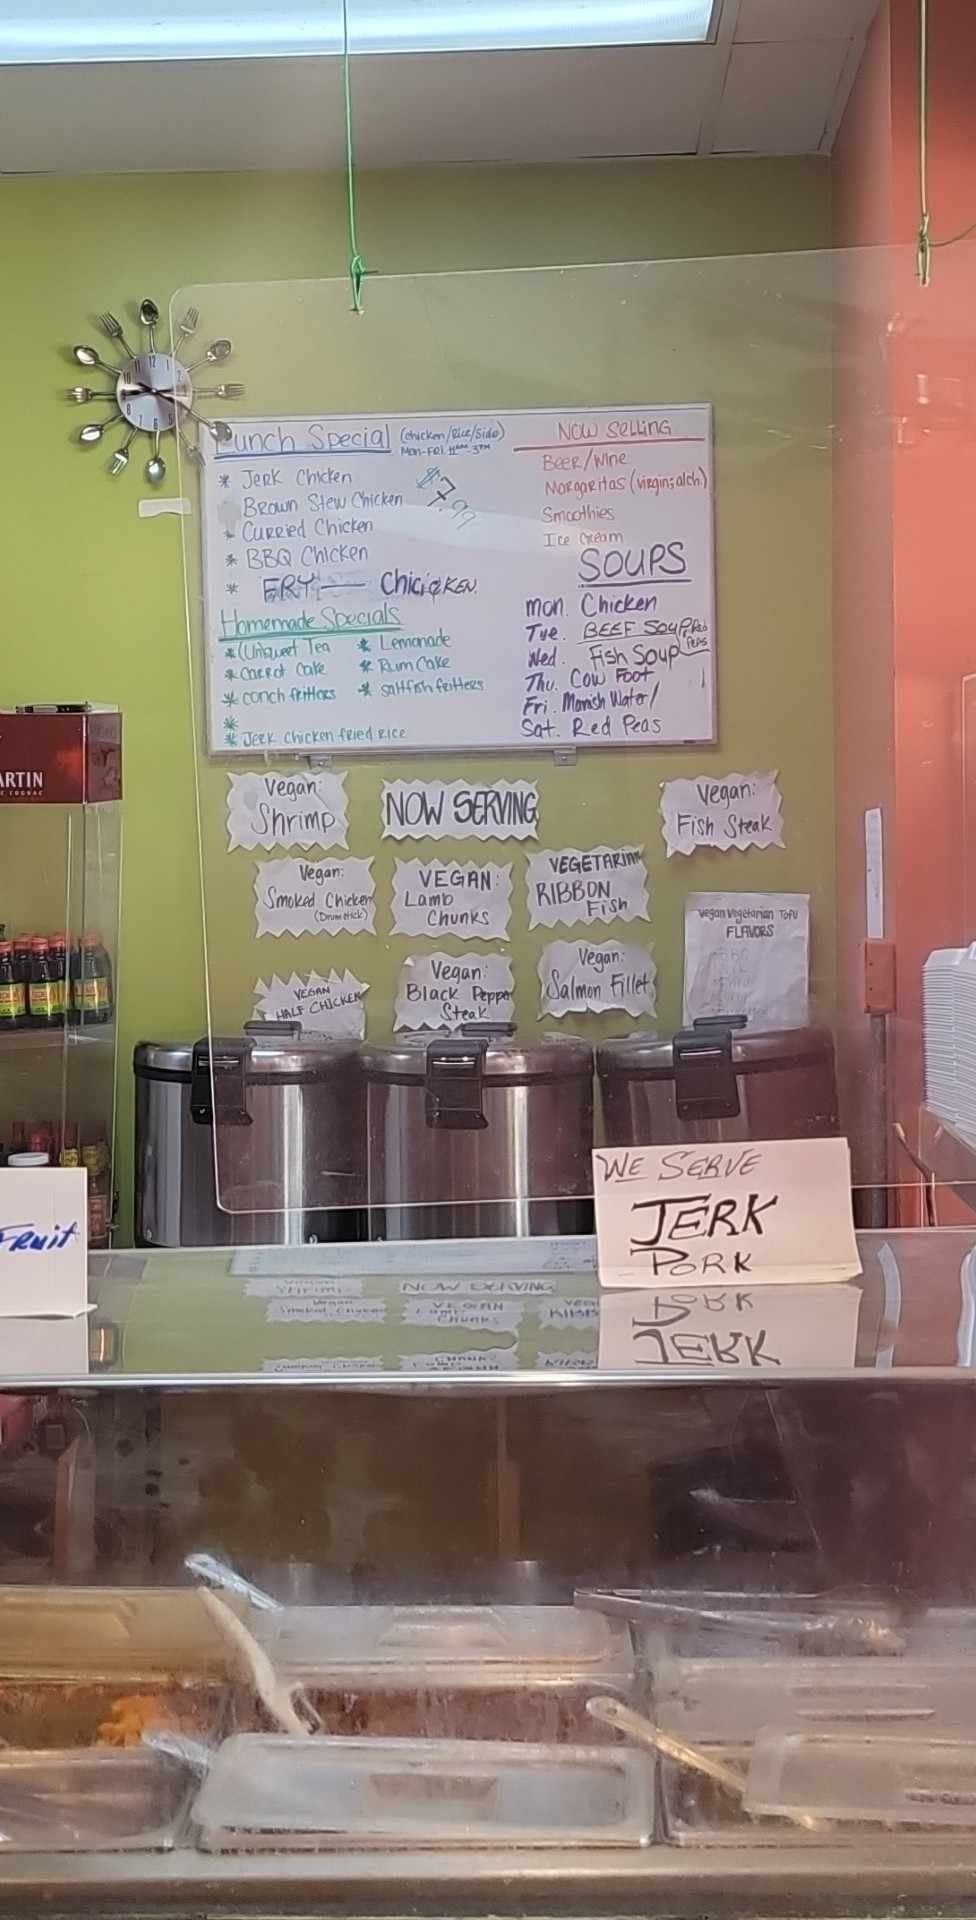 Lunch Special (chicken/Rice/side)
Mon-Fri. 11AM-3PM
* Jerk Chicken
$7.99
Brown Stew Chicken
* Curried Chicken
* BBQ Chicken
* FRY Chicken
Homemade Specials
Tea
* Carrot Cake
* conch fritters
*
* Jerk chicken fried rice
* Lemonade
* Rum Cake
* saltfish fritters
Now Selling
Beer/Wine
Margaritas (virgin;alch.)
Smoothies
Ice Cream
SOUPS
Mon. Chicken
Tue. BEEF Soup, Red Peas
Wed. Fish Soup
Thu. Cow Foot
Fri. Manish Water/
Sat. Red Peas
ARTIN
Vegan:
Shrimp
NOW SERVING
Vegan:
Fish Steak
Vegan:
Smoked Chicken
(Drumstick)
VEGAN:
Lamb
Chunks
VEGETARIAN
RIBBON
Fish
Vegan Vegetarian Tofu
FLAVORS
VEGAN
HALF CHICKEN
Vegan:
Black Pepper
Steak
Vegan:
Salmon Fillet
WE SERVE
JERK
PORK
FRuit